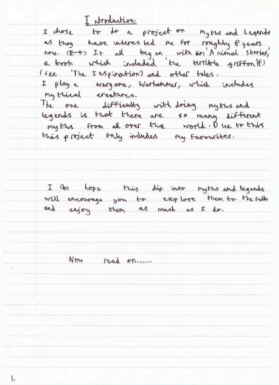 Introduction:
I chose to do a project on myths and Legends
as they have interested me for roughly 8 years
now. It all began with an Animal stories,
a book which included 'the terrible griffon,
(see 'The Inspiration) and other tales.
I play a wargame, Warhammer, which includes
mythical creatures.
The one difficulty with doing myths and
legends is that there are so many different
myths from all over the world. Due to this
this project only includes my favourites.
I do hope this dip into myths and legends
will encourage you to explore them to the full
and enjoy them as much as I do.
Now read on......
1.